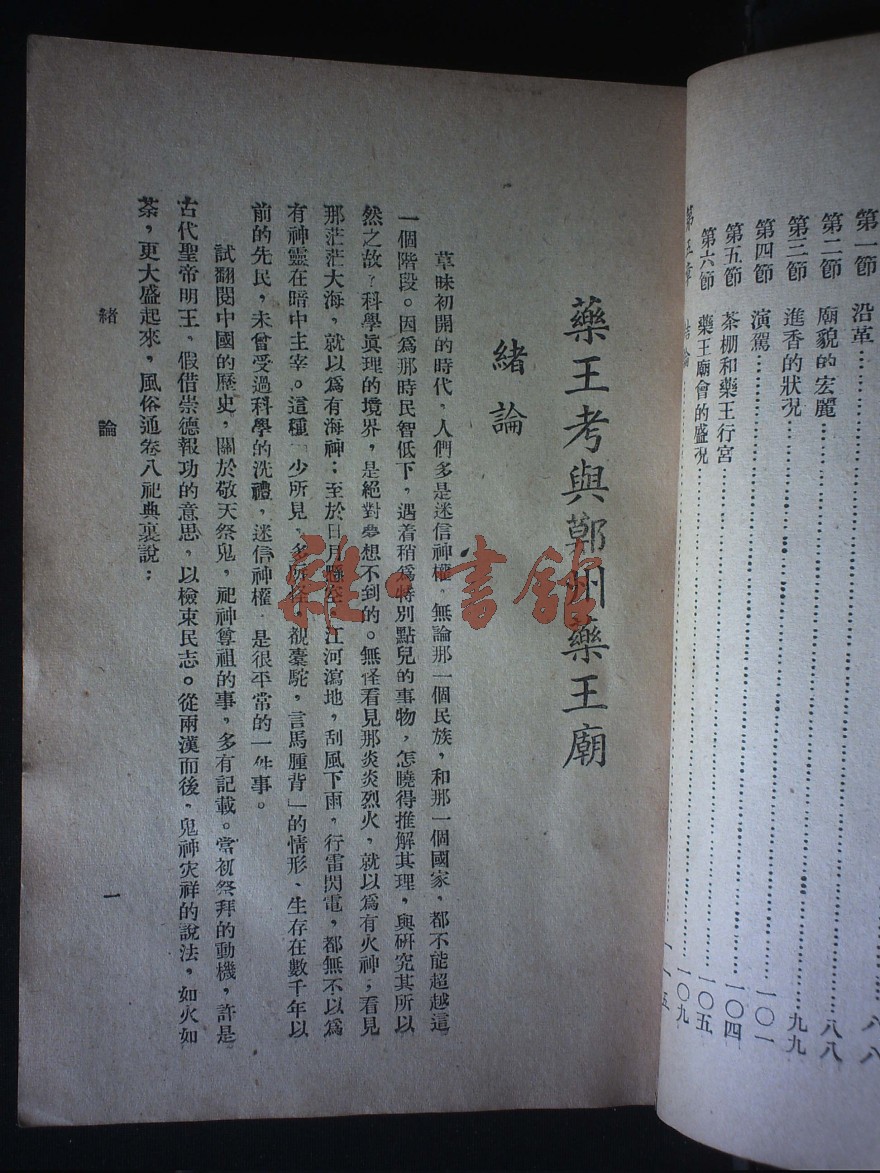 第一節 沿革………八八
第二節 廟貌的宏麗………八八
第三節 進香的狀況………九九
第四節 演駕………一〇一
第五節 茶棚和藥王行宮………一〇四
第六節 藥王廟會的盛況………一〇五
第五章 結論………一〇九
一一五
藥王考與鄚州藥王廟
緒論
草昧初開的時代，人們多是迷信神權，無論那一個民族，和那一個國家，都不能超越這
一個階段。因爲那時民智低下，遇着稍爲特別點兒的事物，怎曉得推解其理，與研究其所以
然之故？科學眞理的境界，是絕對夢想不到的。無怪看見那炎炎烈火，就以爲有火神；看見
那茫茫大海，就以爲有海神；至於日月懸空，江河瀉地，刮風下雨，行雷閃電，都無不以爲
有神靈在暗中主宰。這種「少所見，多所怪，覩橐駝，言馬腫背」的情形、生存在數千年以
前的先民，未曾受過科學的洗禮，迷信神權，是很平常的一件事。
試翻閱中國的歷史，關於敬天祭鬼，祀神尊祖的事，多有記載。當初祭拜的動機，許是
古代聖帝明王、假借崇德報功的意思，以檢束民志。從兩漢而後，鬼神灾祥的說法，如火如
荼，更大盛起來，風俗通卷八祀典裏說：
緒論
一
雜·書館